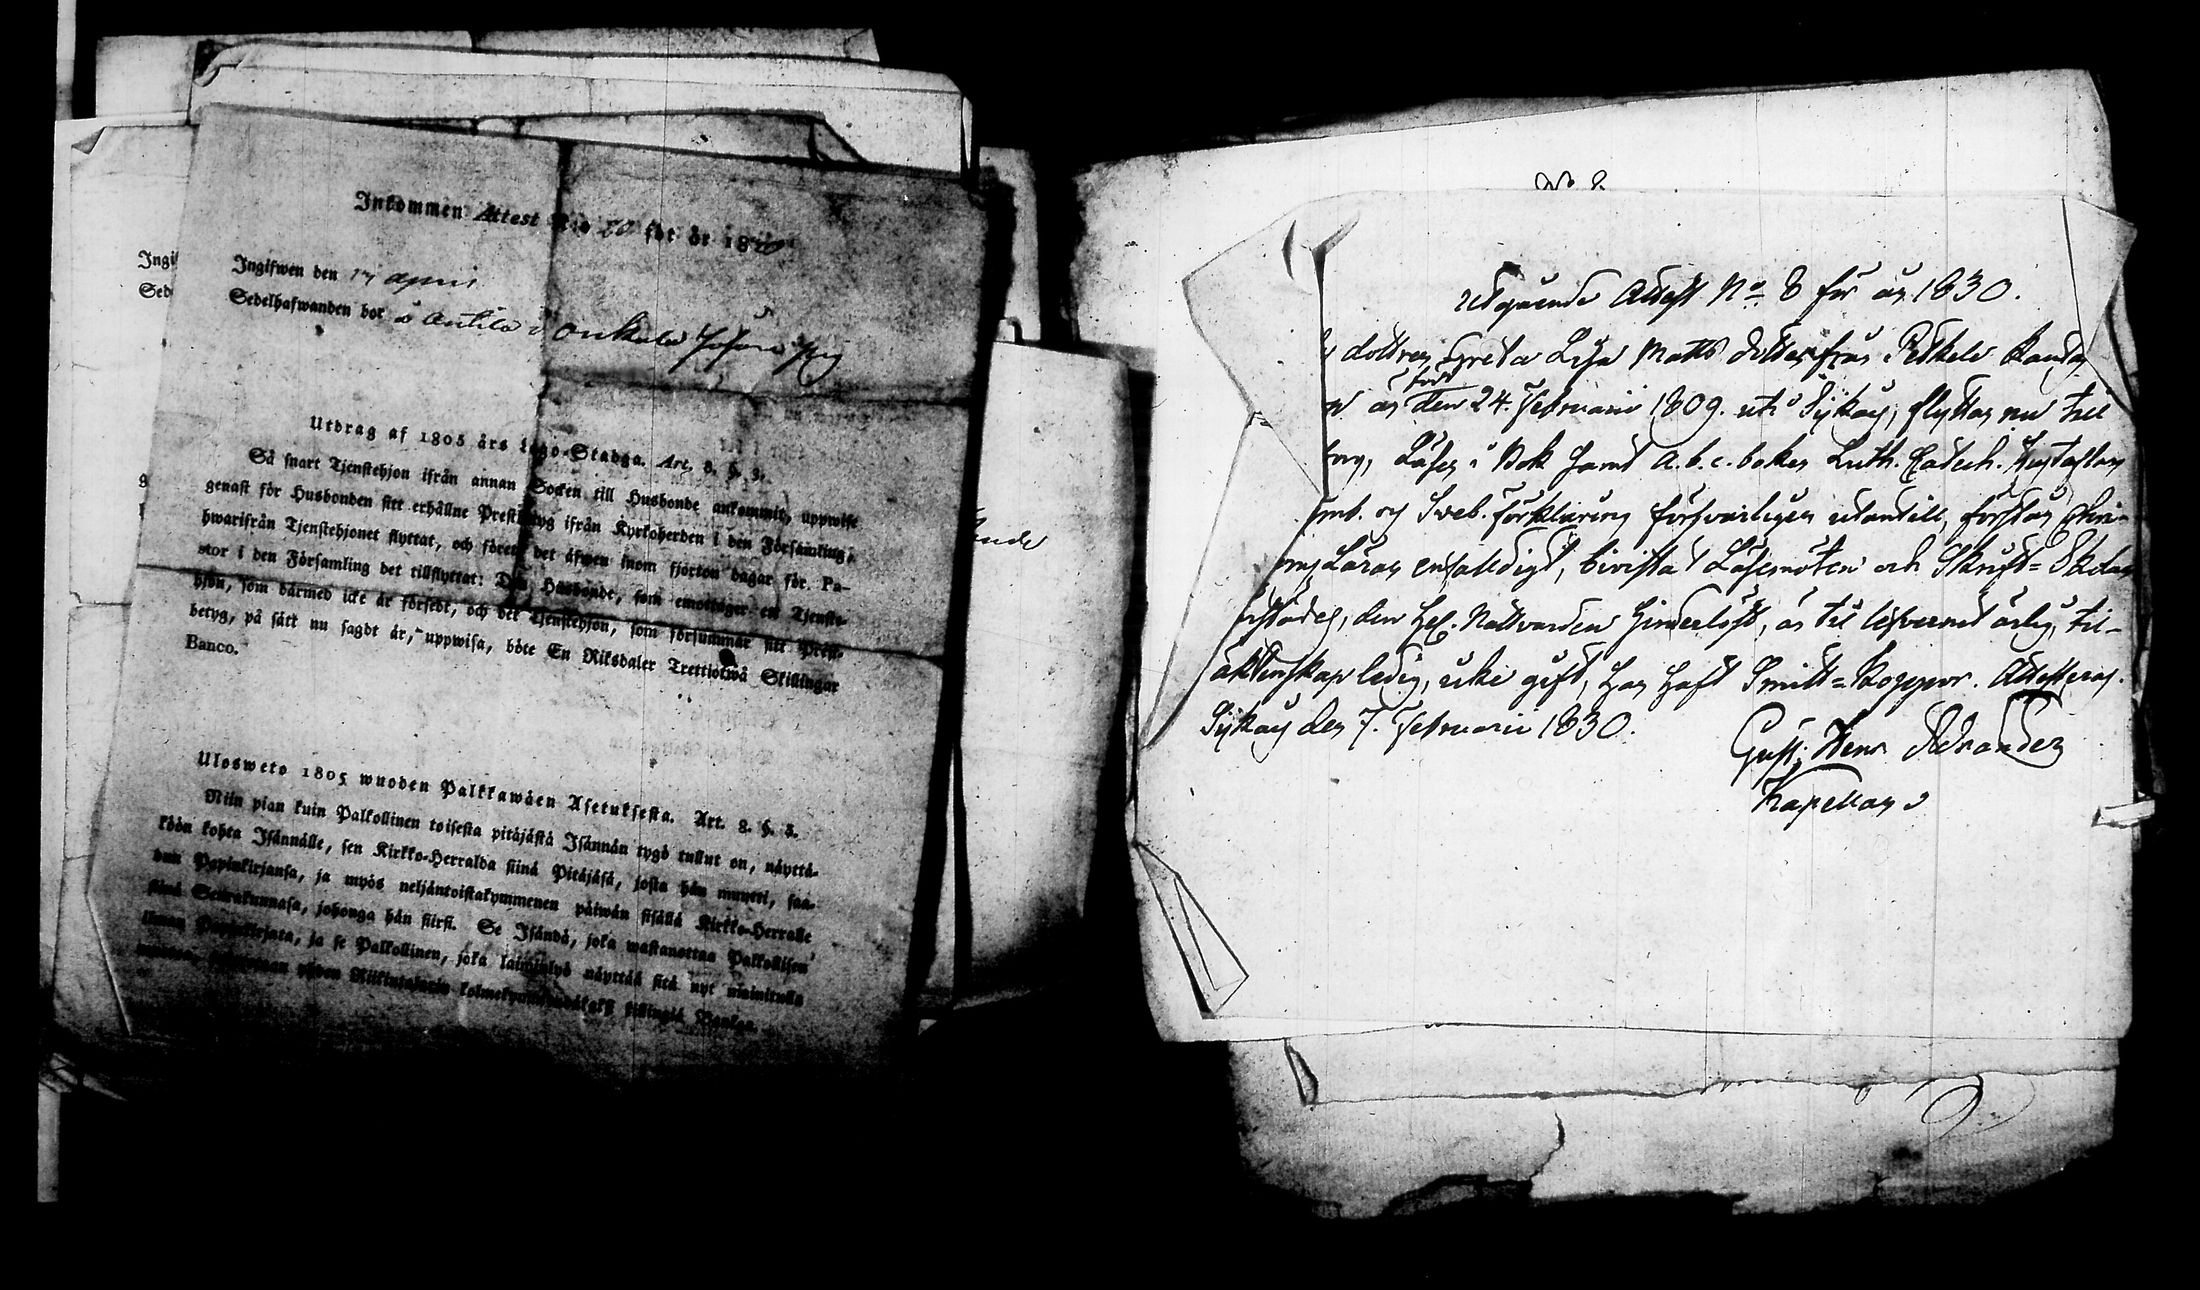 Inkommen Attest N:o 20 för år 1830
Ingifwen den 17 April
Sedelhafwanden bor å Antila i Onkala
Utdrag af 1805 års Lego-Stadga. Art. 8. §. 3.
Så snart Tjenstehjon ifrån annan Socken till Husbonde ankommit, uppwise
genast för Husbonden sitt erhållne Prestbetyg ifrån Kyrkoherden i den Församling,
hwarifrån Tjenstehjonet flyttat, och förete det äfwen inom fjorton dagar för Pa-
stor i den Församling det tillflyttat: Den Husbonde, som emottager en Tjenste-
hjon, som därmed icke är försedt, och det Tjenstehjon, som försummar sitt Prest-
betyg, på sätt nu sagdt är, uppwisa, böte En Riksdaler Trettiotwå Skillingar
Banco.
Ulosweto 1805 wuoden Palkkawäen Asetuksesta. Art. 8. §. 3.
Niin pian kuin Palkollinen toisesta pitäjästä Isännän tygö tullut on, näyttä-
köön kohta Isännälle, sen Kirkko-Herralda siinä Pitäjäsä, josta hän muutti, saa-
dun Papinkirjansa, ja myös neljäntoistakymmenen päiwän sisällä Kirkko-Herralle
siinä Seurakunnasa, johonga hän siirsi. Se Isändä, joka wastanottaa Palkollisen
ilman Papinkirjata, ja se Palkollinen, joka laiminlyö näyttää sitä nyt mainitulla
Riikintalarin kolmekymmendäkaksi killingiä Bankoa.
Ingif
Sed
ande
No 8
Utgående Attest No 8 för år 1830.
dottren Greta Lisa Matts dotter från Petkele
född
är den 24. Februarii 1809. uti Sykäy, flyttar nu till
Läser i Bok samt A.b.c. boken Luth. Catech.
Symb. og Sveb. förklaring försvarligen utantill, förstår Chri-
Läran enfalldigt, bivistat Läsemöten och Skrift-Skolan
den Hel. Nattvarden hinderlöst, är til lefvernet ärlig, til
äktenskap ledig, icke gift, har haft Smitt-Koppor. Attesterar.
Sykäy den 7. Februarii 1830.
Gust. Henr
Kapellan